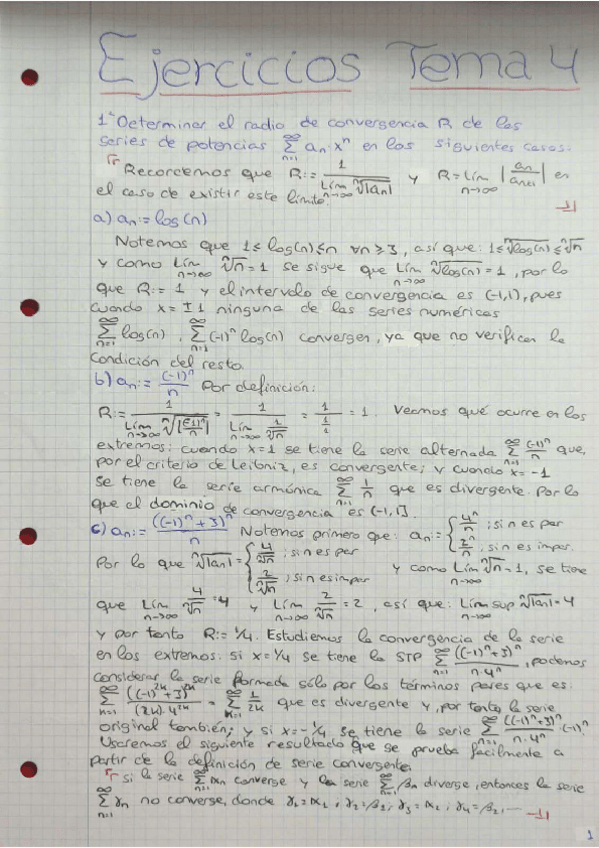 Ejercicios Tema 4
1ª Determinar el radio de convergencia R de las
series de potencias ∑_{n=1}^{∞} aₙ·xⁿ en los siguientes casos.
Recordemos que R:= 1/(Lím_{n→∞} ⁿ√|aₙ|) y R=Lím_{n→∞} |aₙ/aₙ₊₁| en
el caso de existir este límite.
a) aₙ:= log(n)
Notemos que 1≤ log(n)≤n ∀n≥3, así que: 1≤ ⁿ√log(n) ≤ ⁿ√n
y como Lím_{n→∞} ⁿ√n = 1 se sigue que Lím_{n→∞} ⁿ√log(n) = 1, por lo
que R:= 1 y el intervalo de convergencia es (-1,1), pues
cuando x = ±1 ninguna de las series numéricas
∑_{n=1}^{∞} log(n), ∑_{n=1}^{∞} (-1)ⁿ log(n) convergen, ya que no verifican la
condición del resto
b) aₙ:= (-1)ⁿ/n Por definición:
R:= 1/(Lím_{n→∞} ⁿ√|(-1)ⁿ/n|) = 1/(Lím_{n→∞} 1/ⁿ√n) = 1/(1/1) = 1. Veamos qué ocurre en los
extremos: cuando x=1 se tiene la serie alternada ∑_{n=1}^{∞} (-1)ⁿ/n que,
por el criterio de Leibniz, es convergente; y cuando x=-1
se tiene la serie armónica ∑_{n=1}^{∞} 1/n que es divergente. Por lo
que el dominio de convergencia es (-1,1].
c) aₙ:= ((-1)ⁿ+3)ⁿ/n Notemos primero que: aₙ:= { 4ⁿ/n ; si n es par
2ⁿ/n ; si n es impar.
Por lo que ⁿ√|aₙ| = { 4/ⁿ√n ; si n es par
2/ⁿ√n ; si n es impar y como Lím_{n→∞} ⁿ√n = 1, se tiene
que Lím_{n→∞} 4/ⁿ√n = 4 y Lím_{n→∞} 2/ⁿ√n = 2, así que: Lím sup_{n→∞} ⁿ√|aₙ| = 4
y por tanto R:= 1/4. Estudiemos la convergencia de la serie
en los extremos: si x=1/4 se tiene la STP ∑_{n=1}^{∞} ((-1)ⁿ+3)ⁿ/(n·4ⁿ), podemos
considerar la serie formada sólo por los términos pares que es:
∑_{k=1}^{∞} ((-1)²ᵏ+3)²ᵏ/((2k)·4²ᵏ) = ∑_{k=1}^{∞} 1/2k que es divergente y, por tanto, la serie
original también; y si x=-1/4 se tiene la serie ∑_{n=1}^{∞} ((-1)ⁿ+3)ⁿ/(n·4ⁿ)·(-1)ⁿ
Usaremos el siguiente resultado que se prueba fácilmente a
partir de la definición de serie convergente.
si la serie ∑_{n=1}^{∞} αₙ converge y la serie ∑_{n=1}^{∞} βₙ diverge, entonces la serie
∑_{n=1}^{∞} γₙ no converge, donde γ₁=α₁, γ₂=β₁, γ₃=α₂, γ₄=β₂, ...
1